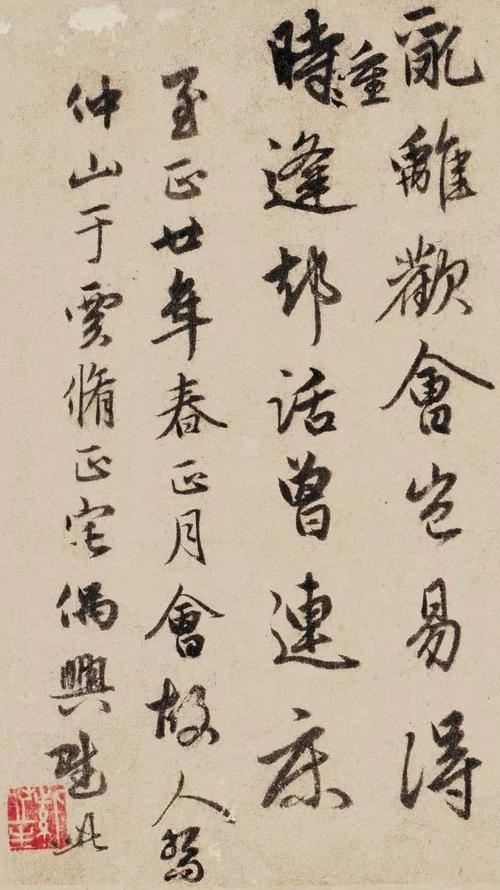 亂離歡會豈易得
時重逢却話曾連床
至正廿年春正月會故人
仲山于賈脩正宅偶興此